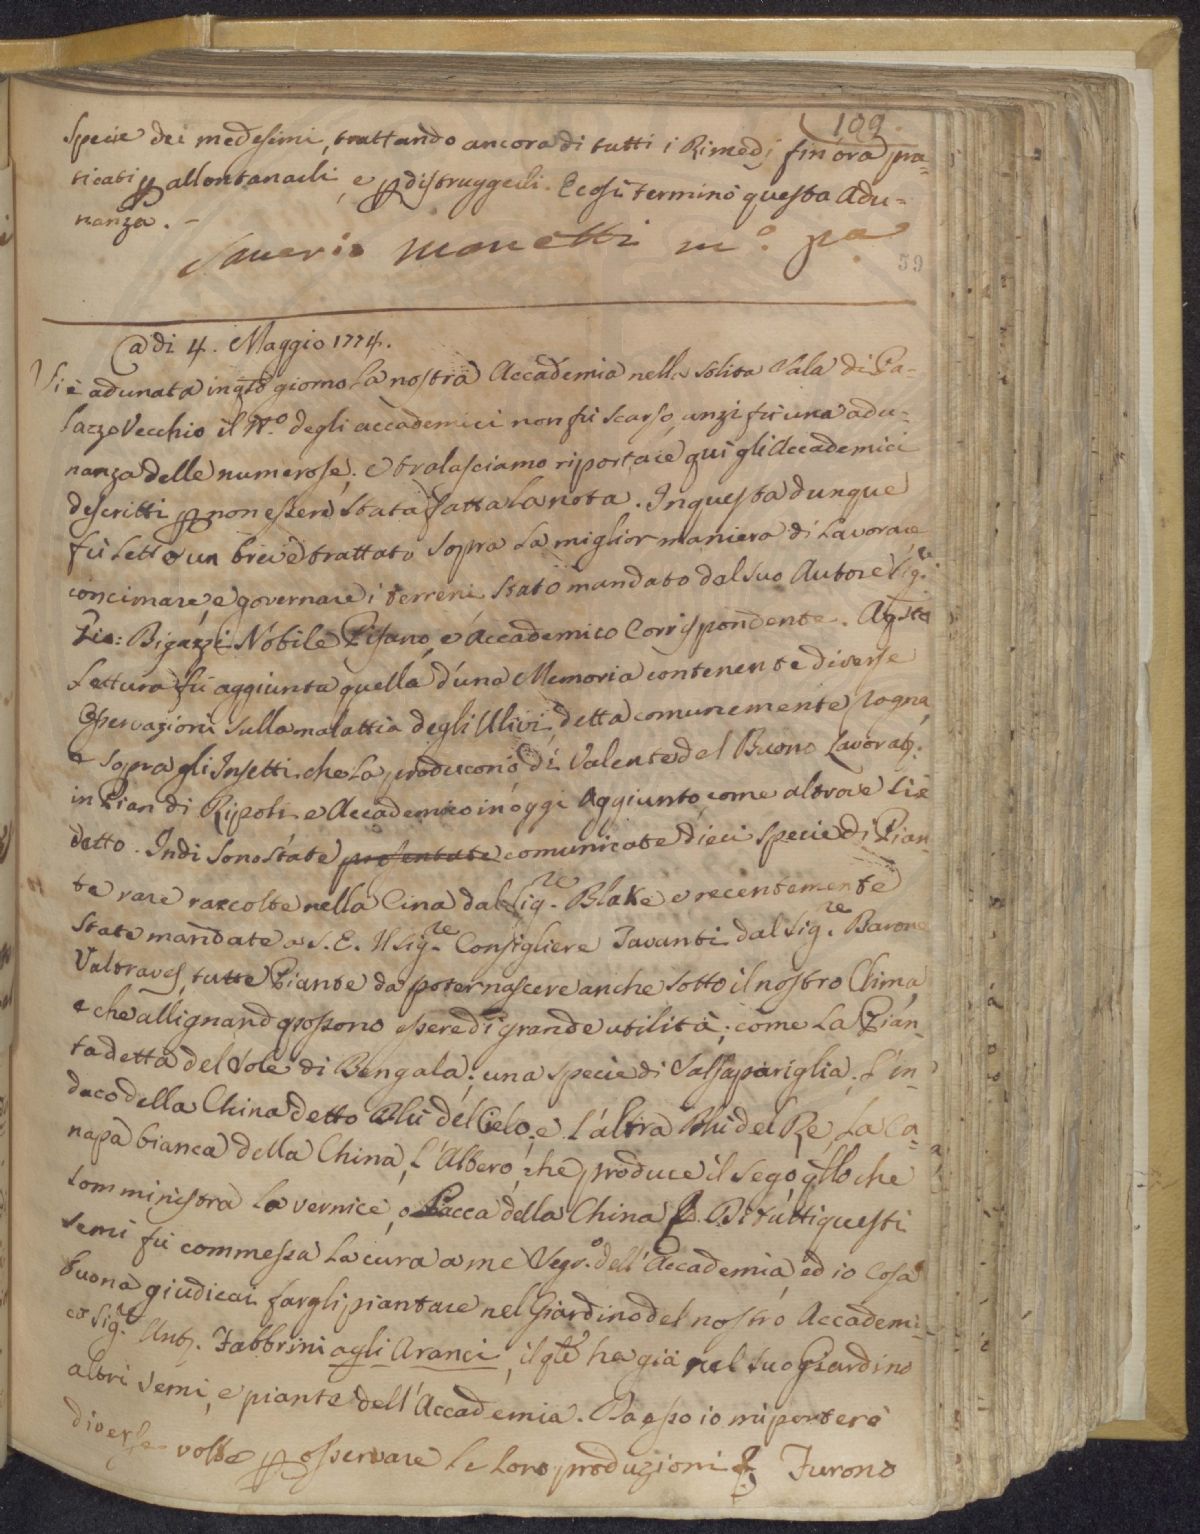 109.
specie dei medesimi, trattando ancora di tutti i Rimedj fin'ora pra=
ticati p allontanarli, e p distruggerli. E così terminò questa Adu=
nanza. -
Saverio Manetti
59
Adi 4. Maggio 1774.
Si è adunata in qto giorno la nostra Accademia nella solita Sala di Pa-
lazzo Vecchio il N.o degli accademici non fù scarso, anzi fù una adu-
nanza delle numerose; e tralasciamo riportare qui gli Accademici
descritti p non essere stata fatta la nota. In questa dunque
fù letto un breve trattato sopra la miglior maniera di Lavorare
concimare, e governare i terreni stato mandato dal suo Autore Sig.re
Gio: Bigazzi Nobile Pisano, e Accademico Corrispondente. A qsta
Lettura fù aggiunta quella d'una Memoria contenente diverse
Osservazioni sulla malattia degli Ulivi, detta comunemente Rogna,
e sopra gl'Insetti che la producono di Valente del Buono Lavorat.
in Pian di Ripoli e Accademico in oggi Aggiunto, come altrove si è
detto. Indi sono state presentate comunicate dieci specie di Pian-
te rare raccolte nella Cina dal Sig.re Blake e recentemente
state mandate a S. E. Il Sig.re Consigliere Tavanti dal Sig.re Barone
Valtraves, tutte Piante da poter nascere anche sotto il nostro Clima,
e che allignando possono essere di grande utilità; come la Pian-
ta detta del Sole di Bengala; una specie di Salsapariglia; L'in-
daco della China detto Blù del Cielo; e l'altra Blù del Rè, La Ca-
napa bianca della China, L'Albero, che produce il Sego, qllo che
somministra la vernice, o Lacca della China &. Di tutti questi
semi fù commessa la cura a me Segr.o dell'Accademia, ed io cosa
buona giudicai fargli piantare nel Giardino del nostro Accademi-
co Sig.re Ant. Fabbrini agli Aranci, il qle ha già nel suo Giardino
altri semi, e piante dell'Accademia. Da esso io mi porterò
diverse volte p osservare le loro produzioni &. Furono